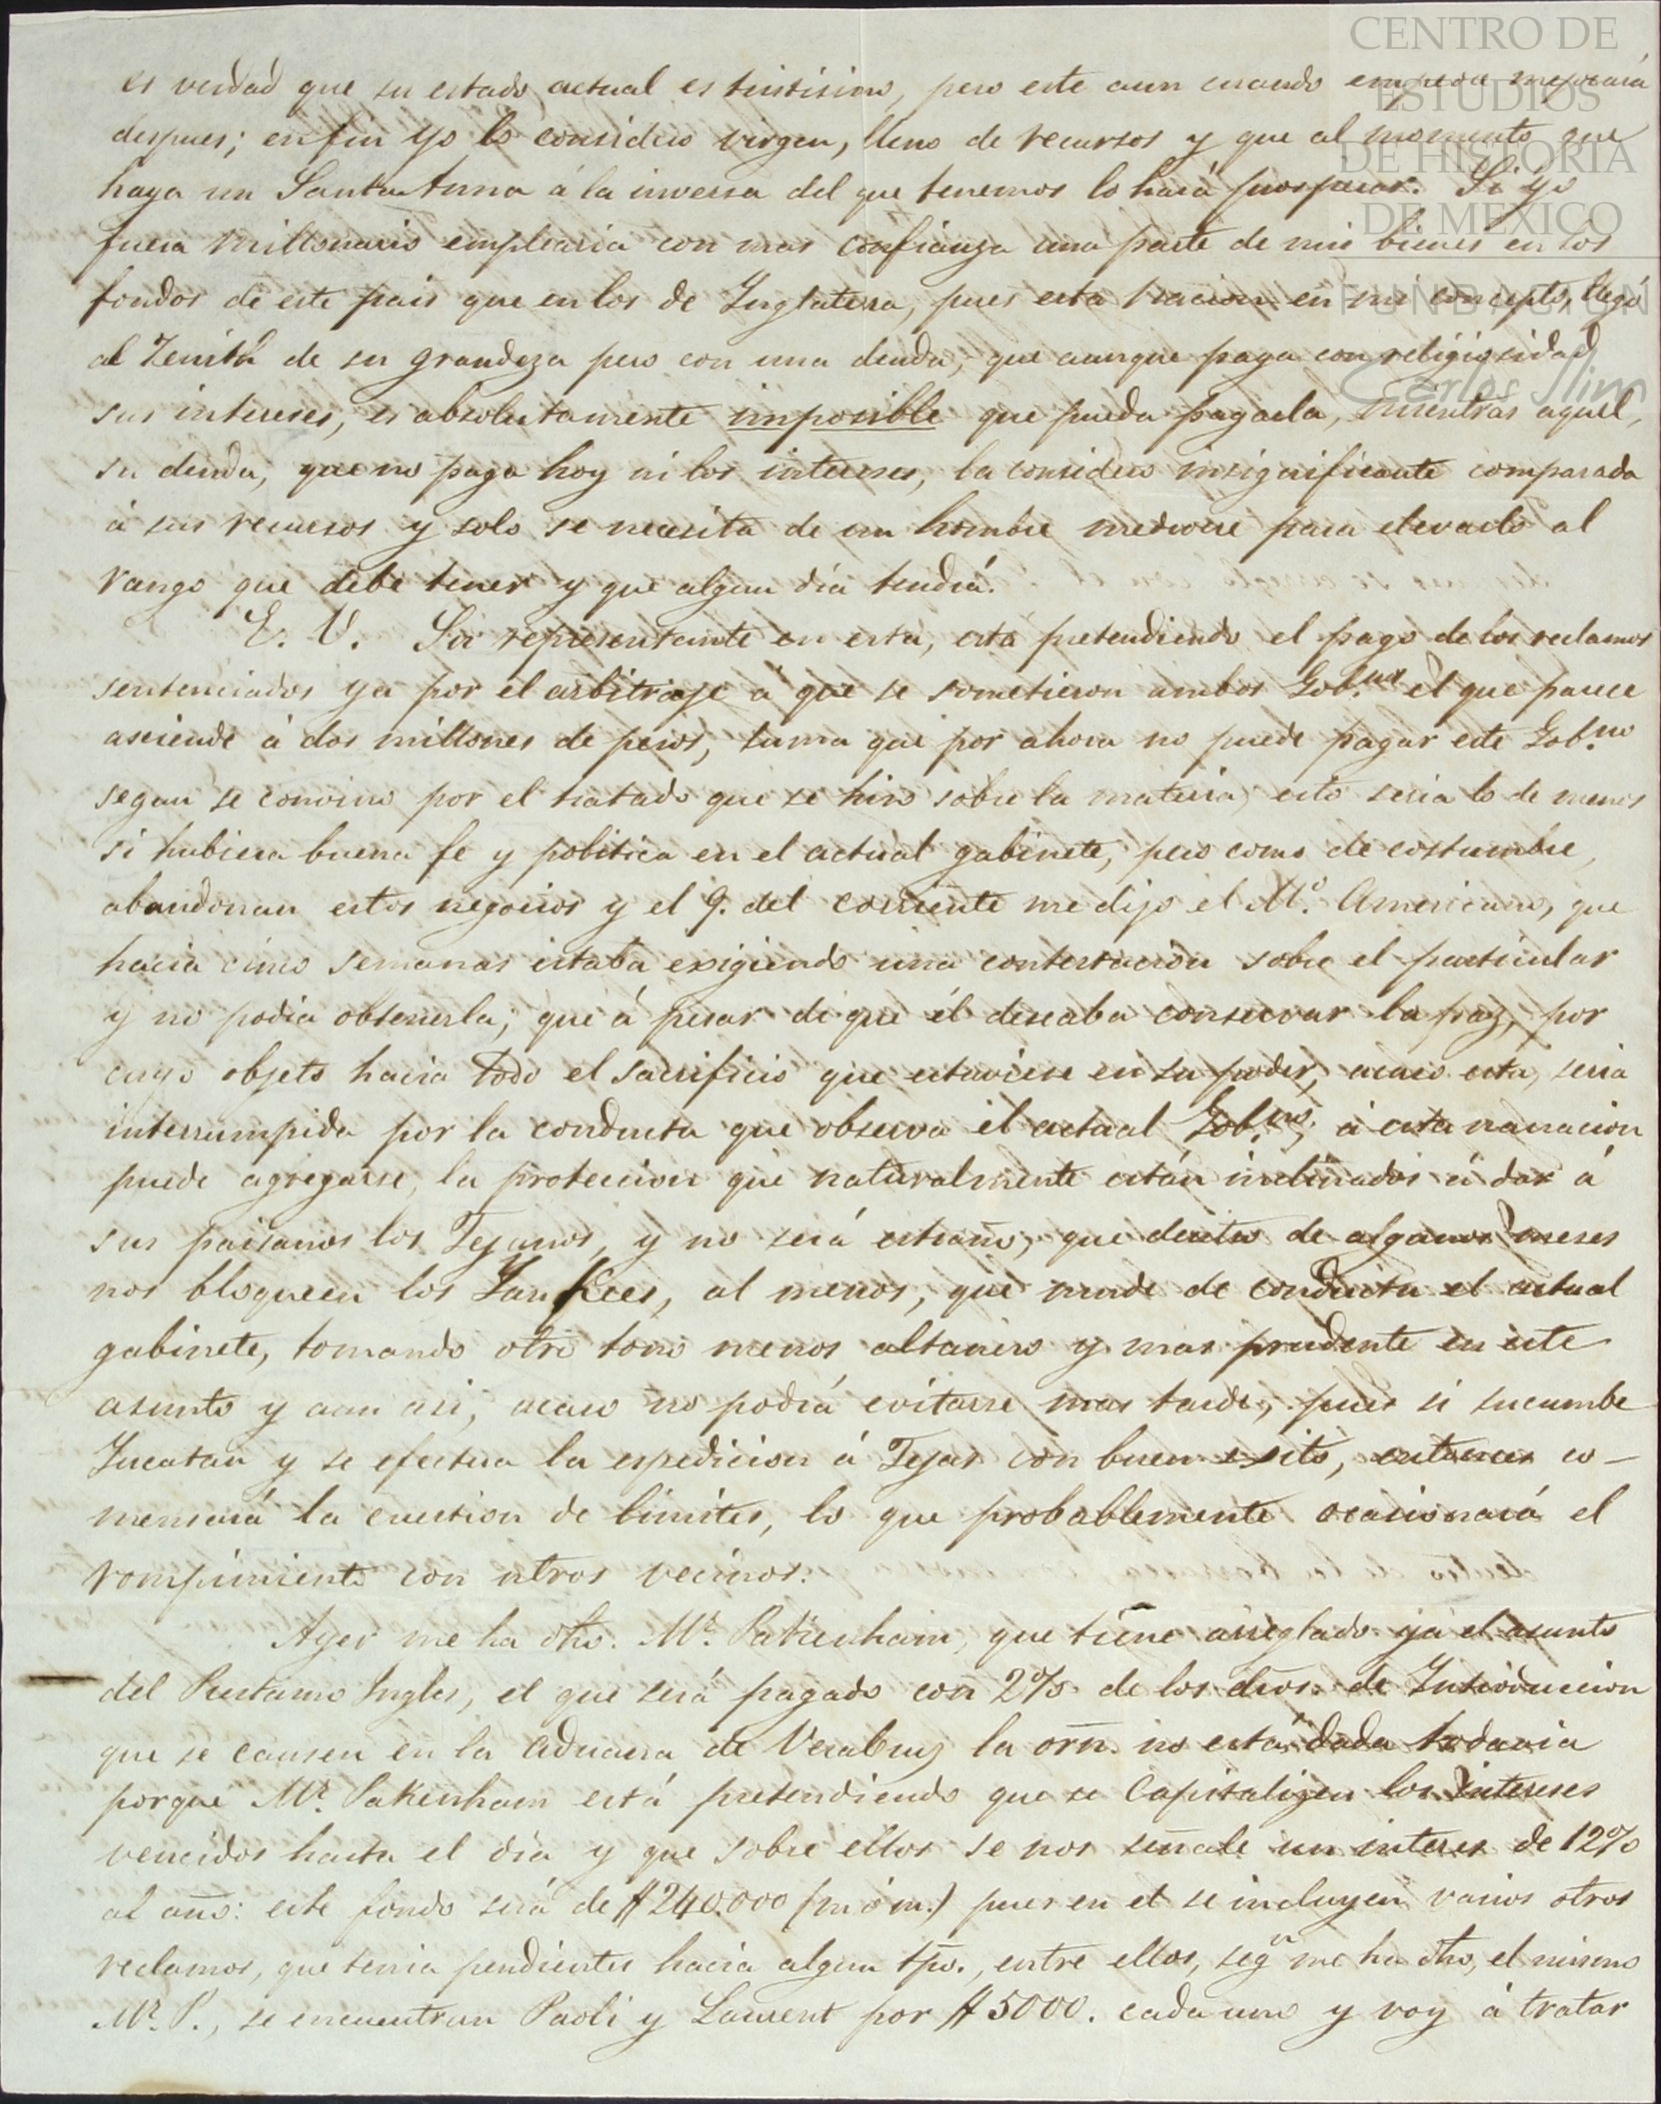 CENTRO DE
ESTUDIOS
DE HISTORIA
DE MÉXICO
FUNDACIÓN
Carlos Slim
es verdad que su estado actual es tristisimo, pero este aun cuando empeore mejorará
despues; en fin yo lo considero virgen, lleno de recursos y que al momento que
haya un Santa Anna á la inversa del que tenemos lo hará prosperar. Si yo
fuera millonario emplearia con mas confianza una parte de mis bienes en los
fondos de este pais que en los de Inglaterra, pues esta nacion en mi concepto, llegó
al Zenith de su grandeza pero con una deuda, que aunque paga con religiosidad
sus intereses, es absolutamente imposible que pueda pagarla, mientras aquel,
su deuda, que no paga hoy ni los intereses, la considero insignificante comparada
á sus recursos y solo se necesita de un hombre mediocre para elevarlo al
rango que debe tener y que algun dia tendrá.
E. U. Su representante en esta, está pretendiendo el pago de los reclamos
sentenciados ya por el arbitraje á que se sometieron ambos Gob.nos el que parece
asciende á dos millones de pesos, suma que por ahora no puede pagar este Gob.no
segun se convino por el tratado que se hizo sobre la materia; esto seria lo de menos
si hubiera buena fe y politica en el actual gabinete, pero como de costumbre,
abandonan estos negocios y el 9. del corriente me dijo el M.o Americano, que
hacia cinco semanas estaba exigiendo una contestacion sobre el particular
y no podia obtenerla; que á pesar de que él deseaba conservar la paz, por
cuyo objeto hacia todo el sacrificio que estuviese en su poder, acaso esta, seria
interrumpida por la conducta que observa el actual Gob.no; á esta narracion
puede agregarse, la proteccion que naturalmente están inclinados á dar á
sus paisanos los Tejanos, y no será estraño, que dentro de algunos meses
nos bloqueen los Yankees, al menos, que mude de conducta el actual
gabinete, tomando otro tono menos altanero y mas prudente en este
asunto y aun asi, acaso no podrá evitarse mas tarde, pues si sucumbe
Yucatan y se efectua la espedicion á Tejas con buen exito, entonces co-
mensará la cuestion de limites, lo que probablemente ocasionará el
rompimiento con ntros vecinos.
Ayer me ha dho. Mr. Pakenham, que tiene arreglado ya el asunto
del Prestamo Ingles, el que será pagado con 2% de los dros. de Introduccion
que se causen en la Aduana de Veracruz la orn. no está dada todavia
porque Mr. Pakenham está pretendiendo que se Capitalizen los intereses
vencidos hasta el dia y que sobre ellos se nos señale un interes de 12%
al año: este fondo será de $240.000 (m ó m.) pues en el se incluyen varios otros
reclamos, que tenia pendientes hacia algun tpo., entre ellos, segn me ha dho, el mismo
Mr. P., se encuentran Paoli y Laurent por $5000. cada uno y voy á tratar